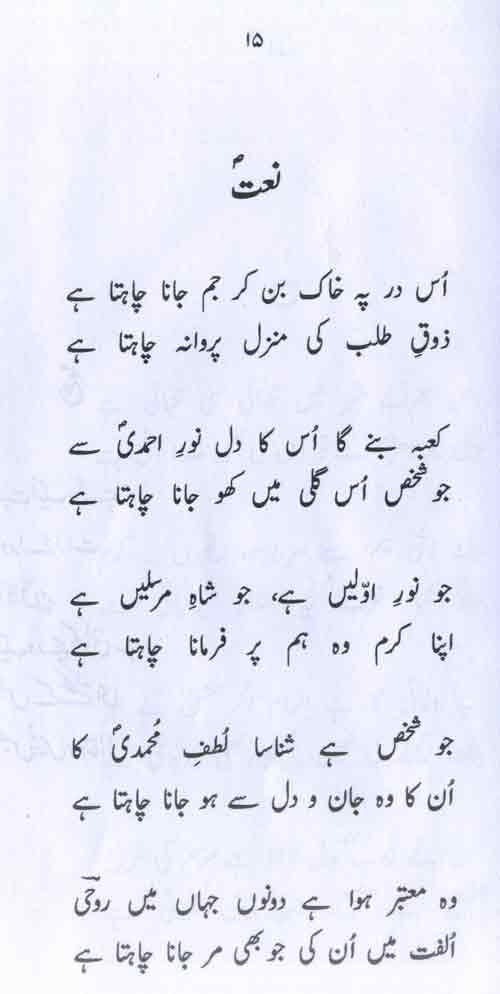 ۱۵
نعتؐ
اُس در پہ خاک بن کر جم جانا چاہتا ہے
ذوقِ طلب کی منزل پروانہ چاہتا ہے
کعبہ بنے گا اُس کا دل نورِ احمدیؐ سے
جو شخص اُس گلی میں کھو جانا چاہتا ہے
جو نورِ اوّلیں ہے، جو شاہِ مرسلیں ہے
اپنا کرم وہ ہم پر فرمانا چاہتا ہے
جو شخص ہے شناسا لُطفِ مُحمدیؐ کا
اُن کا وہ جان و دل سے ہو جانا چاہتا ہے
وہ معتبر ہوا ہے دونوں جہاں میں روحیؔ
اُلفت میں اُن کی جو بھی مر جانا چاہتا ہے